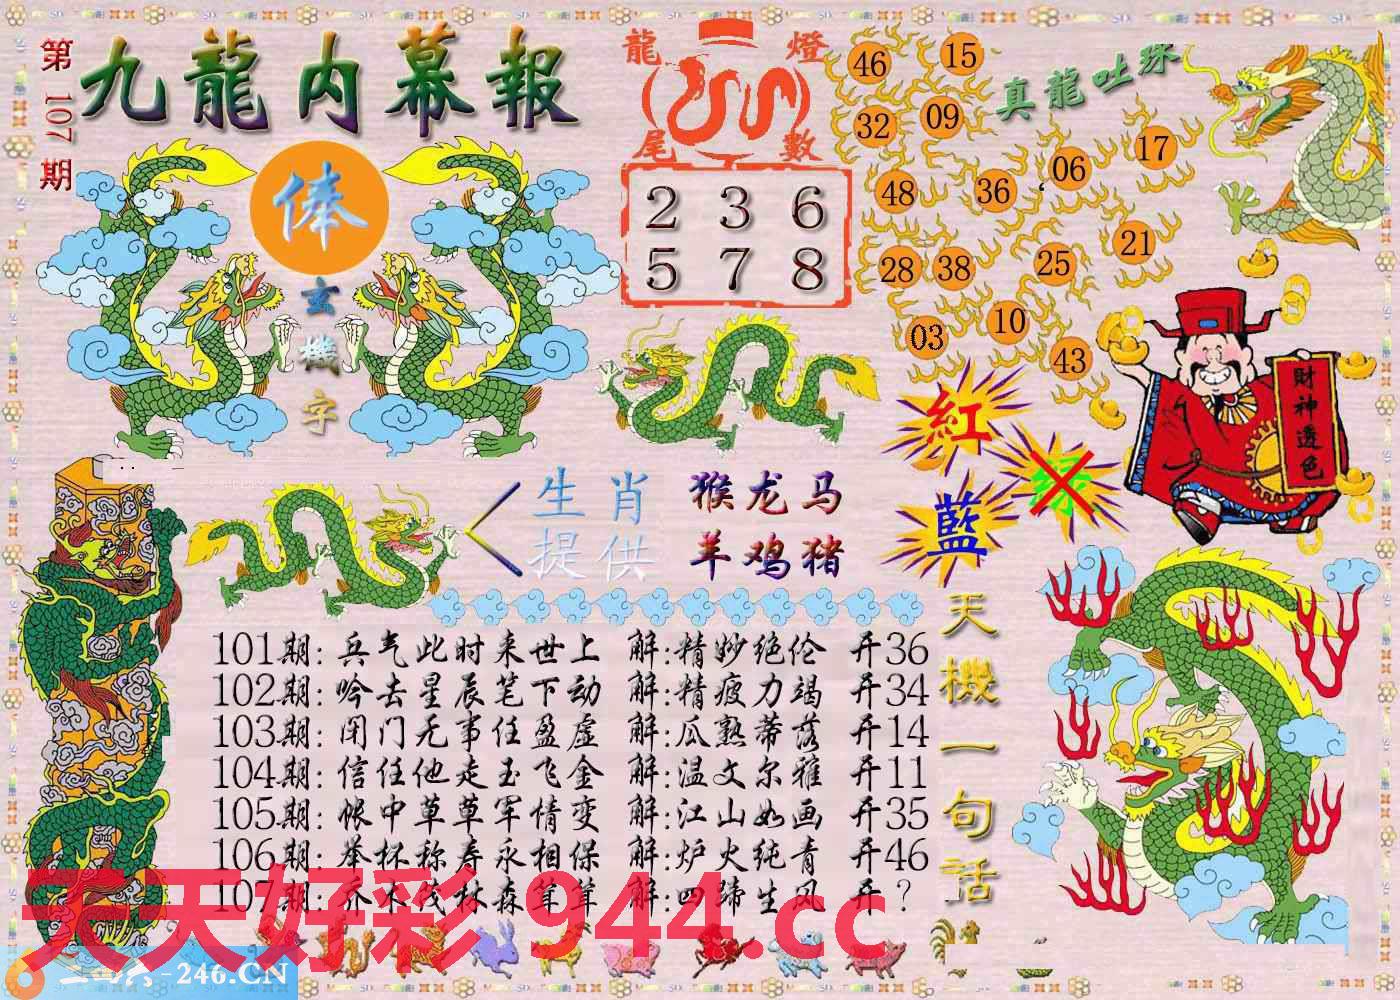 第107期
九龍内幕報
俸
玄機字
龍燈
尾數
2 3 6
5 7 8
46
15
32
09
48
36
06
17
28
38
25
21
03
10
43
真龍吐珠
財神透色
紅
綠
藍
生肖
提供
猴龙马
羊鸡猪
101期:兵气此时来世上 解:精妙绝伦 开36
102期:吟去星辰笔下动 解:精疲力竭 开34
103期:闭门无事任盈虚 解:瓜熟蒂落 开14
104期:信任他走玉飞金 解:温文尔雅 开11
105期:帐中草草军情变 解:江山如画 开35
106期:举杯称寿永相保 解:炉火纯青 开46
107期:乔木伐林森茸茸 解:四蹄生风 开?
天機一句話
天天好彩 944.cc
二四六-246.CN